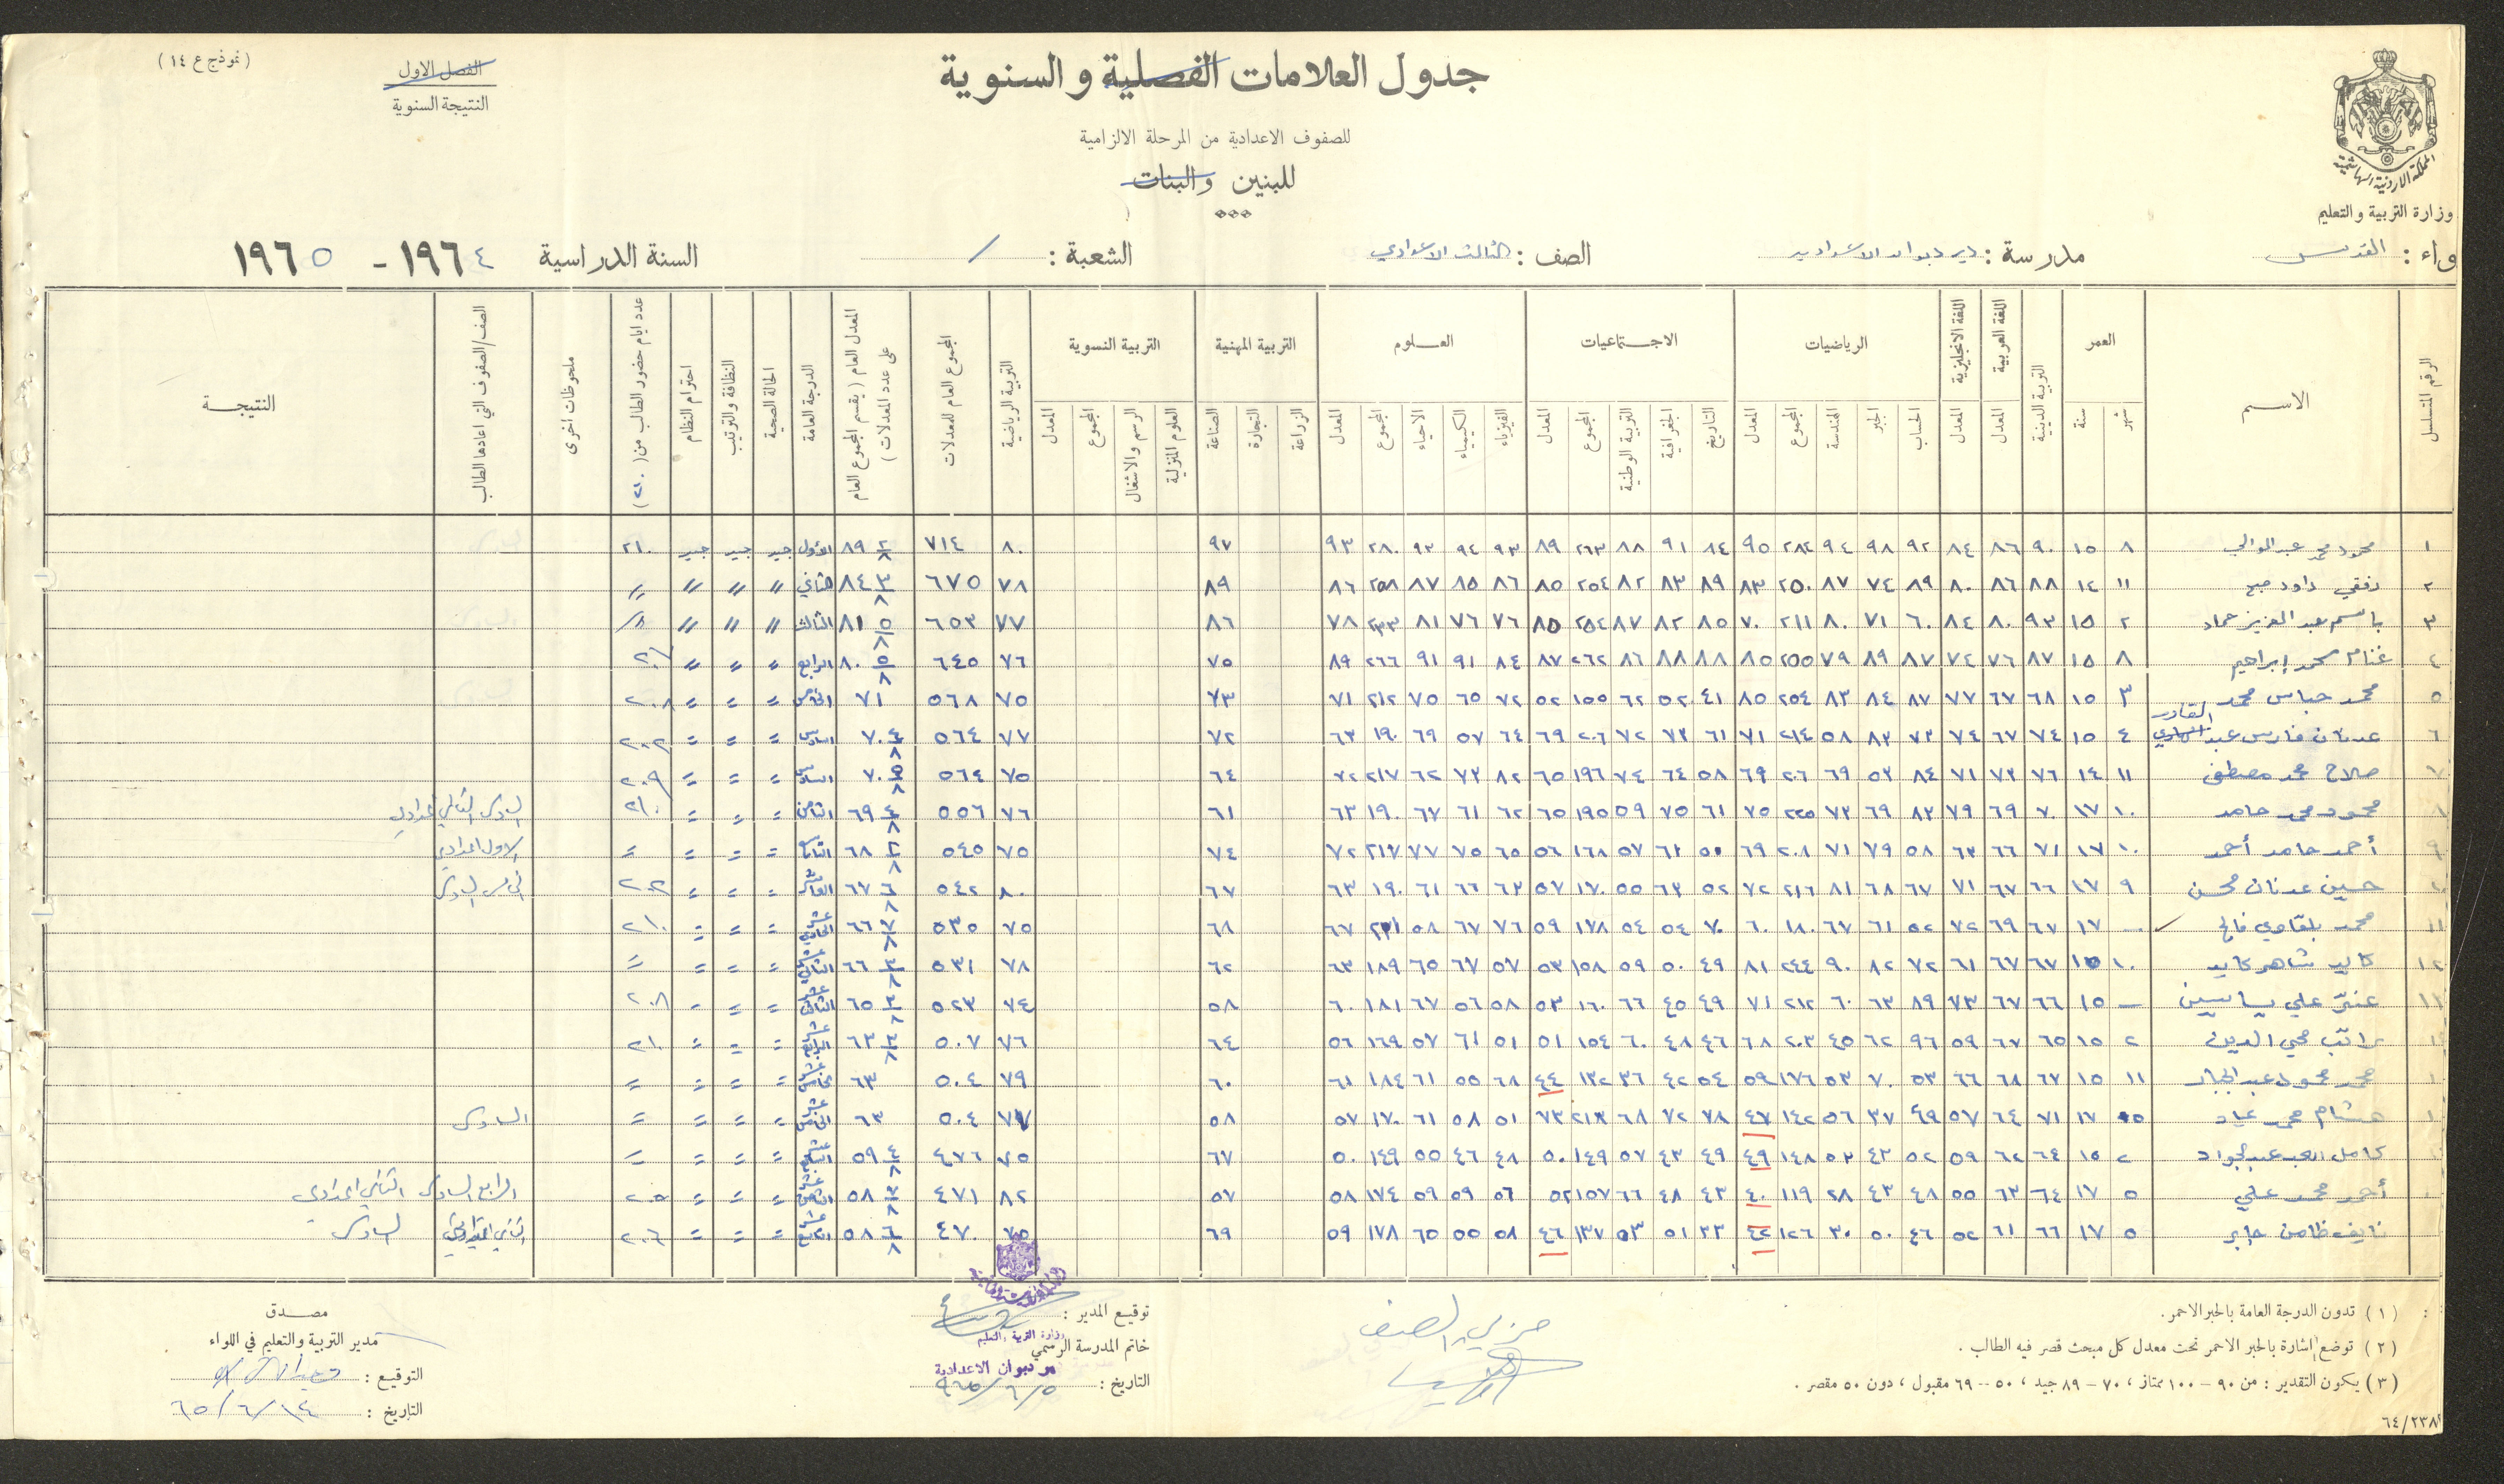 (نموذج ع ١٤)
الفصل الاول
النتيجة السنوية
جدول العلامات الفصلية والسنوية
للصفوف الاعدادية من المرحلة الالزامية
للبنين والبنات
المملكة الاردنية الهاشمية
وزارة التربية والتعليم
واء : القدس مدرسة : دير دبوان الاعدادية الصف : الثالث الاعدادي الشعبة : / السنة الدراسية ١٩٦٤ - ١٩٦٥
الرقم المتسلسل الاسم العمر شهر سنة التربية الدينية اللغة العربية المعدل اللغة الانجليزية المعدل الرياضيات الحساب الجبر الهندسة المجموع المعدل الاجتماعيات التاريخ الجغرافية التربية الوطنية المجموع المعدل العلوم الفيزياء الكيمياء الاحياء المجموع المعدل التربية المهنية الزراعة التجارة الصناعة التربية النسوية العلوم المنزلية الرسم والاشغال المجموع المعدل التربية الرياضية المجموع العام للمعدلات المعدل العام ( يقسم المجموع العام على عدد المعدلات ) الدرجة العامة الحالة الصحية النظافة والترتيب احترام النظام عدد ايام حضور الطالب من ( ٢١٠ ) ملحوظات اخرى الصف/الصفوف التي اعادها الطالب النتيجة
١ محمود محمد عبد الوالي ٨ ١٥ ٩٠ ٨٦ ٨٤ ٩٢ ٩٨ ٩٤ ٢٨٤ ٩٥ ٨٤ ٩١ ٨٨ ٢٦٣ ٨٩ ٩٣ ٩٤ ٩٣ ٢٨٠ ٩٣ ٩٧ ٨٠ ٧١٤ ٨٩ ٢/٨ الأول جيد جيد جيد ٢١٠
٢ رفقي داود صبح ١١ ١٤ ٨٨ ٨٦ ٨٠ ٨٩ ٧٤ ٨٧ ٢٥٠ ٨٣ ٨٩ ٨٣ ٨٢ ٢٥٤ ٨٥ ٨٦ ٨٥ ٨٧ ٢٥٨ ٨٦ ٨٩ ٧٨ ٦٧٥ ٨٤ ٣/٨ الثاني " " " "
٣ باسم عبد العزيز حماد ٢ ١٥ ٩٣ ٨٠ ٨٤ ٦٠ ٧١ ٨٠ ٢١١ ٧٠ ٨٥ ٨٢ ٨٧ ٢٥٤ ٨٥ ٧٦ ٧٦ ٨١ ٢٣٣ ٧٨ ٨٦ ٧٧ ٦٥٣ ٨١ ٥/٨ الثالث " " " "
٤ غنام محمد إبراهيم ٨ ١٥ ٨٧ ٧٦ ٧٤ ٨٧ ٨٩ ٧٩ ٢٥٥ ٨٥ ٨٨ ٨٨ ٨٦ ٢٦٢ ٨٧ ٨٤ ٩١ ٩١ ٢٦٦ ٨٩ ٧٥ ٧٦ ٦٤٥ ٨٠ ٥/٨ الرابع " " " ٢٠٦
٥ محمد عباس محمد ٣ ١٥ ٦٨ ٦٧ ٧٧ ٨٧ ٨٤ ٨٣ ٢٥٤ ٨٥ ٤١ ٥٢ ٦٢ ١٥٥ ٥٢ ٧٢ ٦٥ ٧٥ ٢١٢ ٧١ ٧٣ ٧٥ ٥٦٨ ٧١ الخامس " " " ٢٠٨
٦ عدنان فارس عبد القادر ٤ ١٥ ٧٤ ٦٧ ٧٤ ٧٣ ٨٣ ٥٨ ٢١٤ ٧١ ٦١ ٧٣ ٧٢ ٢٠٦ ٦٩ ٦٤ ٥٧ ٦٩ ١٩٠ ٦٣ ٧٢ ٧٧ ٥٦٤ ٧٠ ٤/٨ السادس " " " ٢٠٢
٧ صلاح محمد مصطفى ١١ ١٤ ٧٦ ٧٣ ٧١ ٨٤ ٥٣ ٦٩ ٢٠٦ ٦٩ ٥٨ ٦٤ ٧٤ ١٩٦ ٦٥ ٨٢ ٧٣ ٦٢ ٢١٧ ٧٢ ٦٤ ٧٥ ٥٦٤ ٧٠ السادس " " " ٢٠٩
٨ محمود محمد حامد ١٠ ١٧ ٧٠ ٦٩ ٧٩ ٨٣ ٦٩ ٧٣ ٢٢٥ ٧٥ ٦١ ٧٥ ٥٩ ١٩٥ ٦٥ ٦٢ ٦١ ٦٧ ١٩٠ ٦٣ ٦١ ٧٦ ٥٥٦ ٦٩ ٤/٨ الثامن " " " ٢١٠ السادس الثاني اعدادي
٩ أحمد حامد أحمد ١٠ ١٧ ٧١ ٦٦ ٦٣ ٥٨ ٧٩ ٧١ ٢٠٨ ٦٩ ٥٠ ٦١ ٥٧ ١٦٨ ٥٦ ٦٥ ٧٥ ٧٧ ٢١٧ ٧٢ ٧٤ ٧٥ ٥٤٥ ٦٨ التاسع " " " " الاول اعدادي
حسين عدنان محسن ٩ ١٧ ٦٦ ٦٧ ٧١ ٦٧ ٦٨ ٨١ ٢١٦ ٧٢ ٥٢ ٦٣ ٥٥ ١٧٠ ٥٧ ٦٣ ٦٦ ٦١ ١٩٠ ٦٣ ٦٧ ٨٠ ٥٤٢ ٦٧ ٦/٨ العاشر " " " ٢٠٢
١١ محمد بلقاوي فالح - ١٧ ٦٧ ٦٩ ٧٢ ٥٢ ٦١ ٦٧ ١٨٠ ٦٠ ٧٠ ٥٤ ٥٤ ١٧٨ ٥٩ ٧٦ ٦٧ ٥٨ ٢٠١ ٦٧ ٦٨ ٧٥ ٥٣٥ ٦٦ ٧/٨ " " " ٢١٠
١٢ كايد شاهر كايد ١٠ ١٥ ٦٧ ٦٧ ٦١ ٧٢ ٨٢ ٩٠ ٢٤٤ ٨١ ٤٩ ٥٠ ٥٩ ١٥٨ ٥٣ ٥٧ ٦٧ ٦٥ ١٨٩ ٦٣ ٦٢ ٧٨ ٥٣١ ٦٦ " " " "
علي ياسين - ١٥ ٦٦ ٦٧ ٧٣ ٨٩ ٦٣ ٦٠ ٢١٢ ٧١ ٤٩ ٤٥ ٦٦ ١٦٠ ٥٣ ٥٨ ٥٦ ٦٧ ١٨١ ٦٠ ٥٨ ٧٤ ٥٢٣ ٦٥ ٣/٨ " " " ٢٠٨
راتب محي الدين ٢ ١٥ ٦٥ ٦٧ ٥٩ ٩٦ ٦٢ ٤٥ ٢٠٣ ٦٨ ٤٦ ٤٨ ٦٠ ١٥٤ ٥١ ٥١ ٦١ ٥٧ ١٦٩ ٥٦ ٦٤ ٧٦ ٥٠٧ ٦٣ ٣/٨ " " " ٢١٠
محمد محمود عبد الجبار ١١ ١٥ ٦٧ ٦٨ ٦٦ ٥٣ ٧٠ ٥٣ ١٧٦ ٥٩ ٥٤ ٤٢ ٣٦ ١٣٢ ٤٤ ٦٨ ٥٥ ٦١ ١٨٤ ٦١ ٦٠ ٧٩ ٥٠٤ ٦٣ " " " "
هشام محمد عياد ١٧ ٧١ ٦٤ ٥٧ ٤٩ ٣٧ ٥٦ ١٤٢ ٤٧ ٧٨ ٧٢ ٦٨ ٢١٨ ٧٣ ٥١ ٥٨ ٦١ ١٧٠ ٥٧ ٥٨ ٧٧ ٥٠٤ ٦٣ " " " " السادس
كامل العبد عبد الجواد ٢ ١٥ ٦٤ ٦٢ ٥٩ ٥٢ ٤٣ ٥٣ ١٤٨ ٤٩ ٤٩ ٤٣ ٥٧ ١٤٩ ٥٠ ٤٨ ٤٦ ٥٥ ١٤٩ ٥٠ ٦٧ ٧٥ ٤٧٦ ٥٩ ٤/٨ " " " "
أحمد محمد علي ٥ ١٧ ٦٤ ٦٣ ٥٥ ٤٨ ٤٣ ٢٨ ١١٩ ٤٠ ٤٣ ٤٨ ٦٦ ١٥٧ ٥٢ ٥٦ ٥٩ ٥٩ ١٧٤ ٥٨ ٥٧ ٨٢ ٤٧١ ٥٨ " " " ٢٠٥ الرابع السادس الثاني اعدادي
نايف ضامن جابر ٥ ١٧ ٦٦ ٦١ ٥٢ ٤٦ ٥٠ ٣٠ ١٢٦ ٤٢ ٣٣ ٥١ ٥٣ ١٣٧ ٤٦ ٥٨ ٥٥ ٦٥ ١٧٨ ٥٩ ٦٩ ٧٥ ٤٧٠ ٥٨ ٦/٨ " " " ٢٠٦ الثاني اعدادي السادس
(١) تدون الدرجة العامة بالحبر الاحمر .
(٢) توضع اشارة بالحبر الاحمر تحت معدل كل مبحث قصر فيه الطالب .
(٣) يكون التقدير : من ٩٠ - ١٠٠ ممتاز ، ٧٠ - ٨٩ جيد ، ٥٠ -- ٦٩ مقبول ، دون ٥٠ مقصر .
٦٤/٢٣٨
مربي الصف
توقيع المدير :
وزارة التربية والتعليم
خاتم المدرسة الرسمي
دير دبوان الاعدادية
التاريخ : ٩٦٥/٦/٥
مصدق
مدير التربية والتعليم في اللواء
التوقيع :
التاريخ : ٦٥/٦/١٤